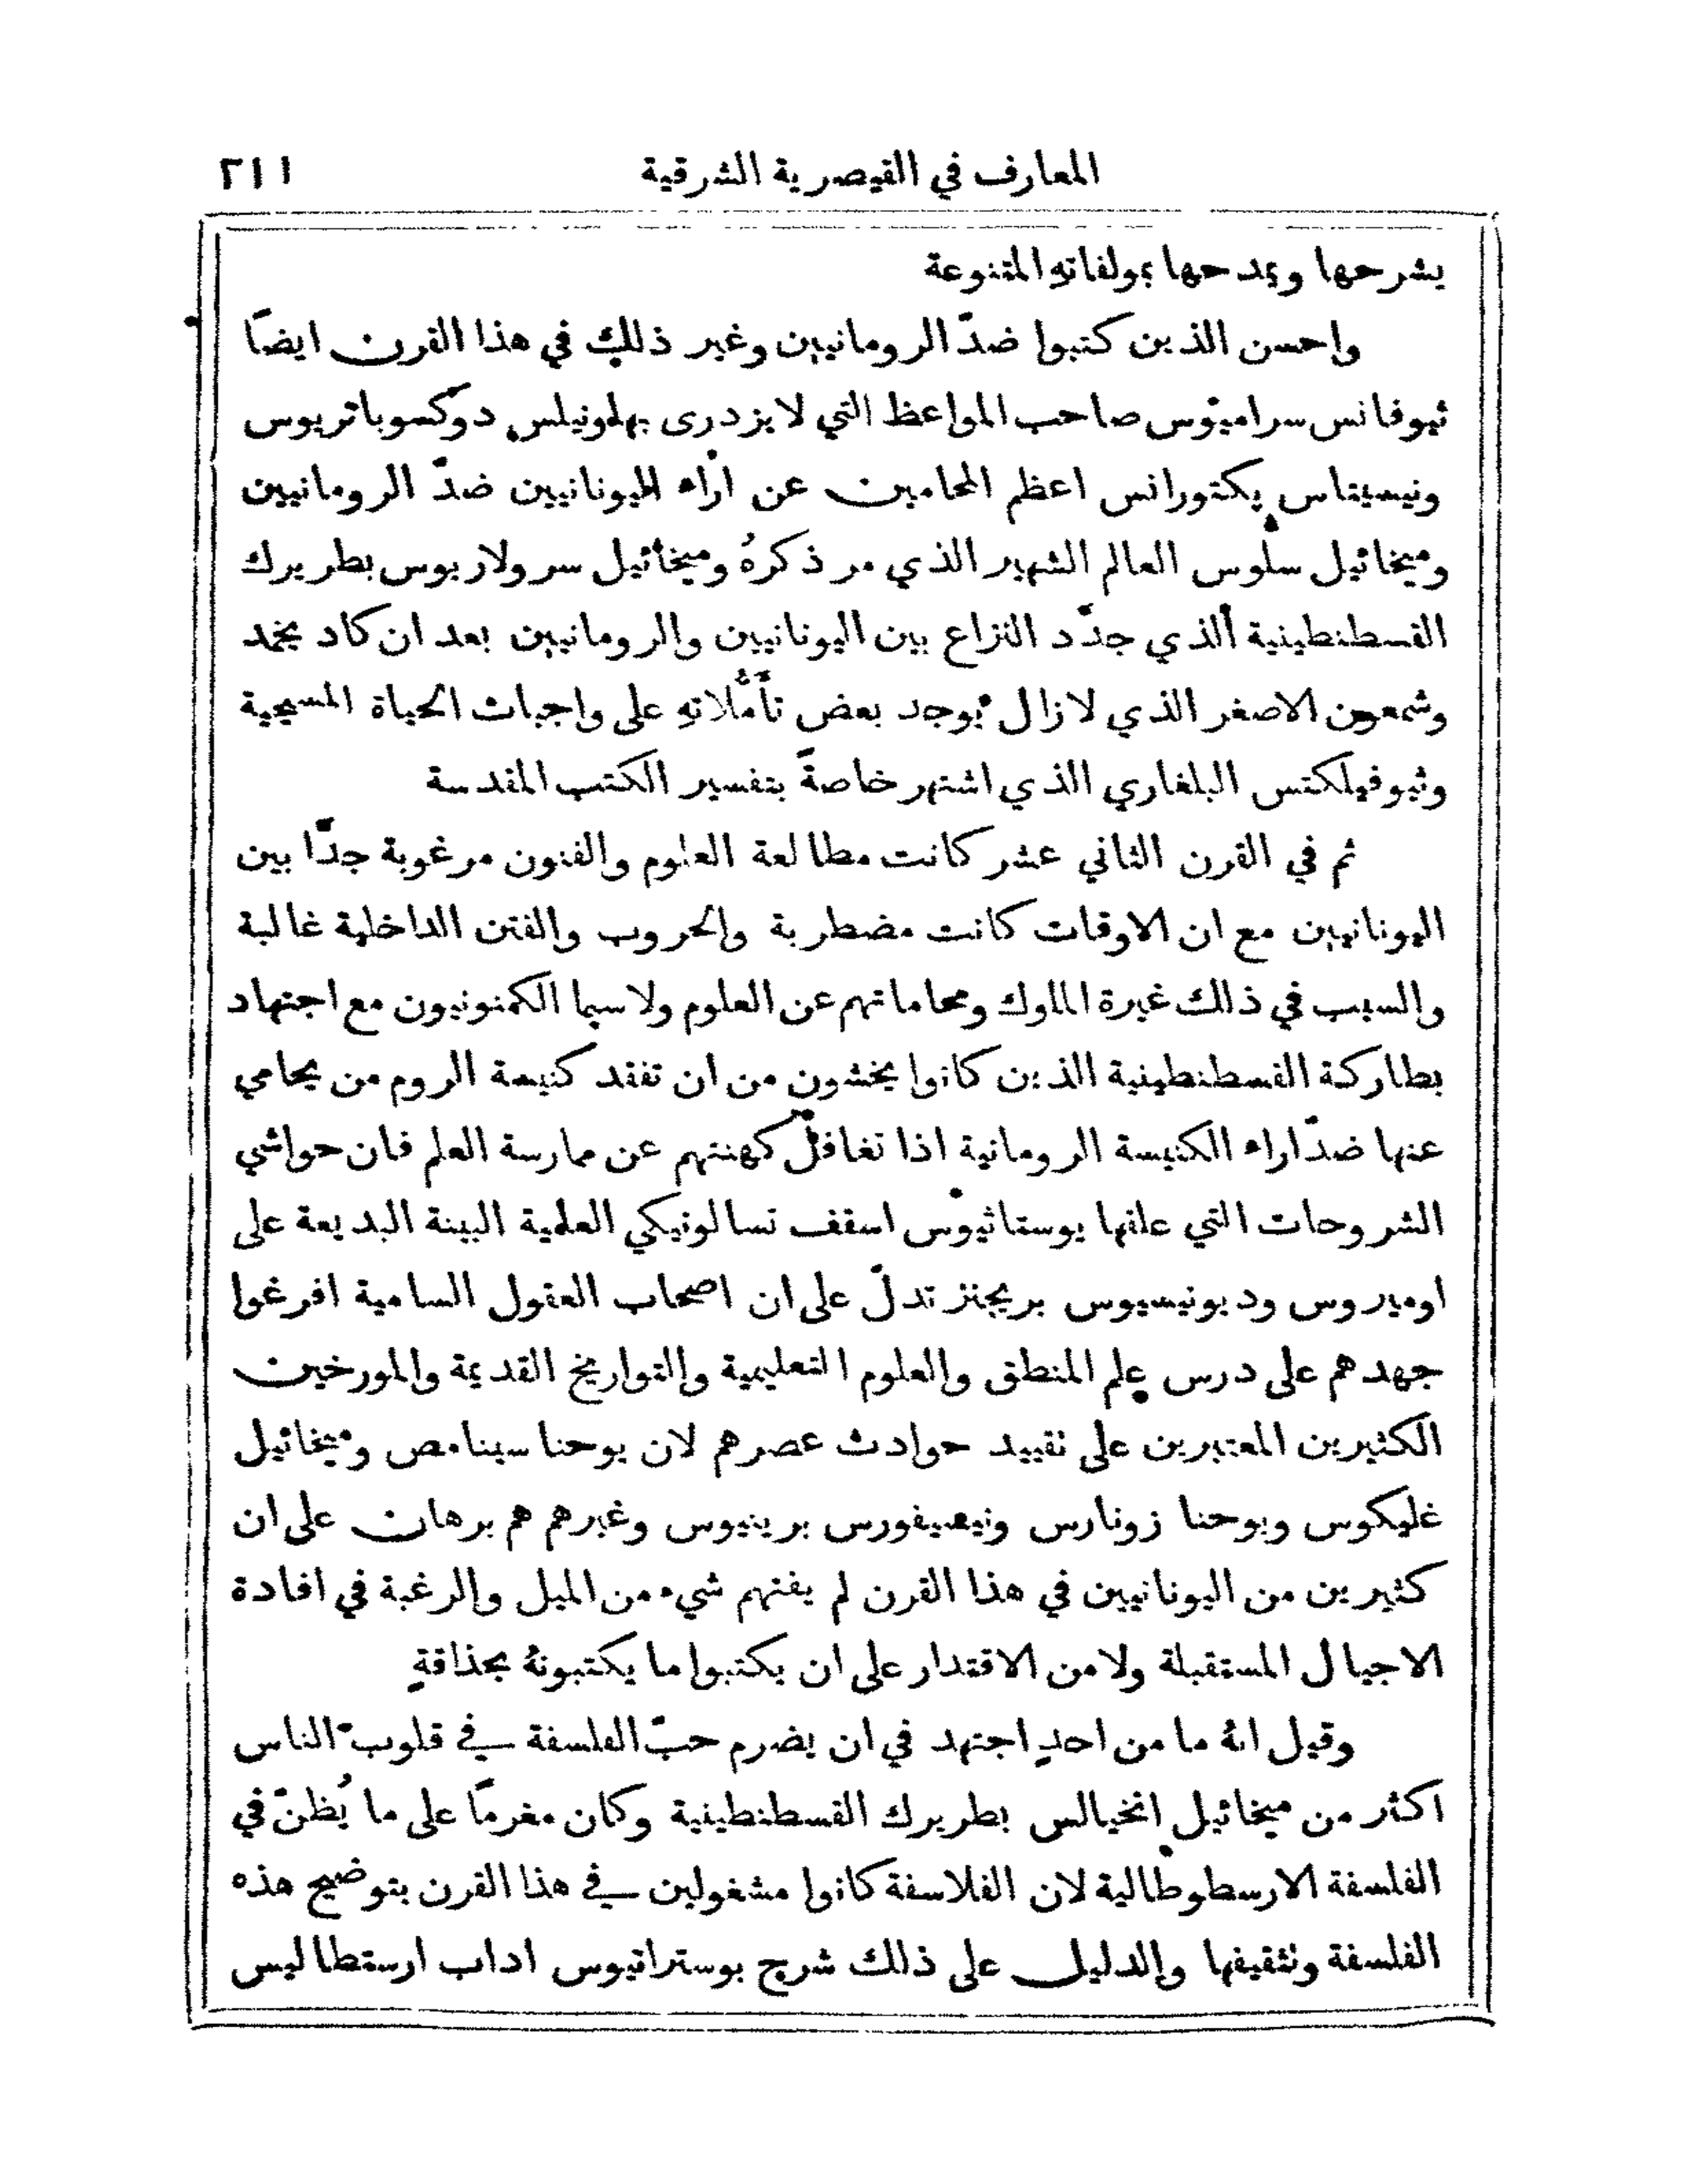 المعارف في القيصرية الشرقية ٢١١
يشرحها ويمدحها بمولفاتهِ المتنوعة
واحسن الذين كتبوا ضدّ الرومانيين وغير ذلك في هذا القرن ايضًا
ثيوفانس سراميوس صاحب المواعظ التي لا يزدرى بها ونيلس دوكسوباتريوس
ونيسيتاس پكتورانس اعظم المحامين عن اراء اليونانيين ضدّ الرومانيين
وميخائيل سلوس العالم الشهير الذي مر ذكرهُ وميخائيل سرولاريوس بطريرك
القسطنطينية الذي جدّد النزاع بين اليونانيين والرومانيين بعد ان كاد يخمد
وشمعون الاصغر الذي لازال يوجد بعض تأملاتهِ على واجبات الحياة المسيحية
وثيوفيلكتس البلغاري الذي اشتهر خاصةً بتفسير الكتب المقدسة
ثم في القرن الثاني عشر كانت مطالعة العلوم والفنون مرغوبة جدًّا بين
اليونانيين مع ان الاوقات كانت مضطربة والحروب والفتن الداخلية غالبة
والسبب في ذلك غيرة الملوك ومحاماتهم عن العلوم ولاسيما الكمنونيون مع اجتهاد
بطاركة القسطنطينية الذين كانوا يخشون من ان تفقد كنيسة الروم من يحامي
عنها ضدّ اراء الكنيسة الرومانية اذا تغافل كهنتهم عن ممارسة العلم فان حواشي
الشروحات التي علقها يوستاثيوس اسقف تسالونيكي العلمية البينة البديعة على
اوميروس وديونيسيوس بريجتز تدلّ على ان اصحاب العقول السامية افرغوا
جهدهم على درس علم المنطق والعلوم التعليمية والتواريخ القديمة والمورخين
الكثيرين المعتبرين على تقييد حوادث عصرهم لان يوحنا سينامص وميخائيل
غليكوس ويوحنا زونارس ونيصيفورس برينيوس وغيرهم هم برهان على ان
كثيرين من اليونانيين في هذا القرن لم يفتهم شيء من الميل والرغبة في افادة
الاجيال المستقبلة ولا من الاقتدار على ان يكتبوا ما يكتبونهُ بحذاقةٍ
وقيل انهُ ما من احدٍ اجتهد في ان يضرم حبّ الفلسفة في قلوب الناس
اكثر من ميخائيل انخيالس بطريرك القسطنطينية وكان مغرمًا على ما يُظنّ في
الفلسفة الارسطوطالية لان الفلاسفة كانوا مشغولين في هذا القرن بتوضيح هذه
الفلسفة وتثقيفها والدليل على ذلك شرح يوستراتيوس اداب ارستطاليس